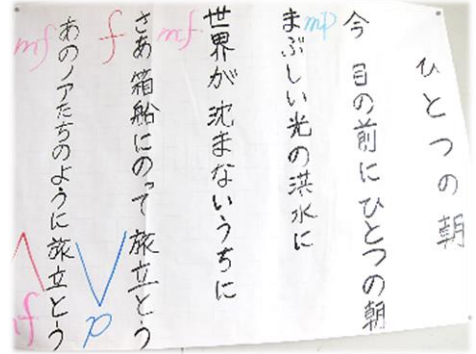 ひとつの朝
今 目の前にひとつの朝
mp
まぶしい光の洪水に
世界が沈まないうちに
mf
さあ箱船にのって旅立とう
f
p
あのノアたちのように旅立とう
mf
f